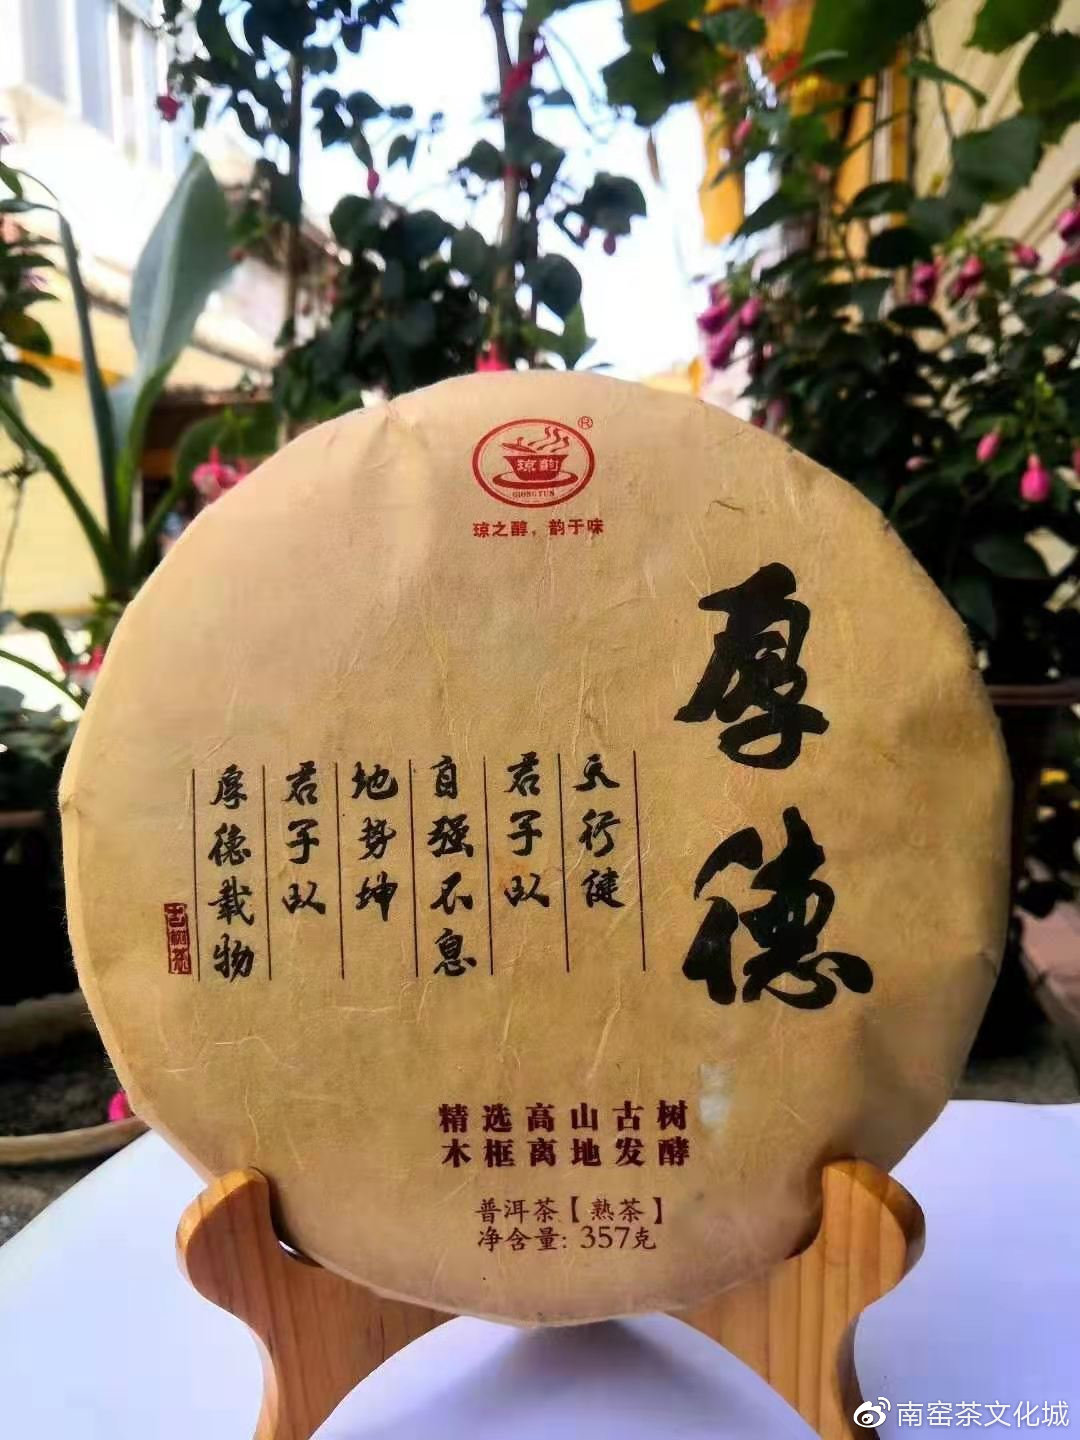 琼韵
®
QIONG YUN
琼之醇，韵于味
厚德
天行健
君子以
自强不息
地势坤
君子以
厚德载物
古树茶
精选高山古树
木框离地发酵
普洱茶【熟茶】
净含量: 357克
南窑茶文化城